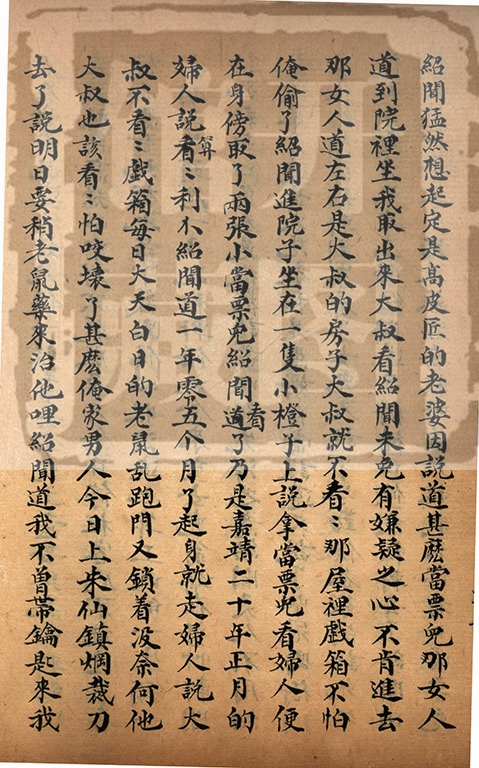 紹聞猛然想起定是髙皮匠的老婆因說道甚麽當票兒那女人
道到院裡坐我取出來大叔看紹聞未免有嫌疑之心不肯進去
那女人道左右是大叔的房子大叔就不看〻那屋裡戲箱不怕
俺偷了紹聞進院子坐在一隻小櫈子上說拿當票兒看婦人便
在身傍取了兩張小當票兒紹聞道看了乃是嘉靖二十年正月的
婦人說看算〻利不紹聞道一年零五个月了起身就走婦人說大
叔不看〻戲箱每日大天白日的老鼠乱跑門又鎖着没奈何他
大叔也該看〻怕咬壊了甚麽俺家男人今日上朱仙鎮烟裁刀
去了說明日要稍老鼠藥來治他哩紹聞道我不曽帶鑰匙來我